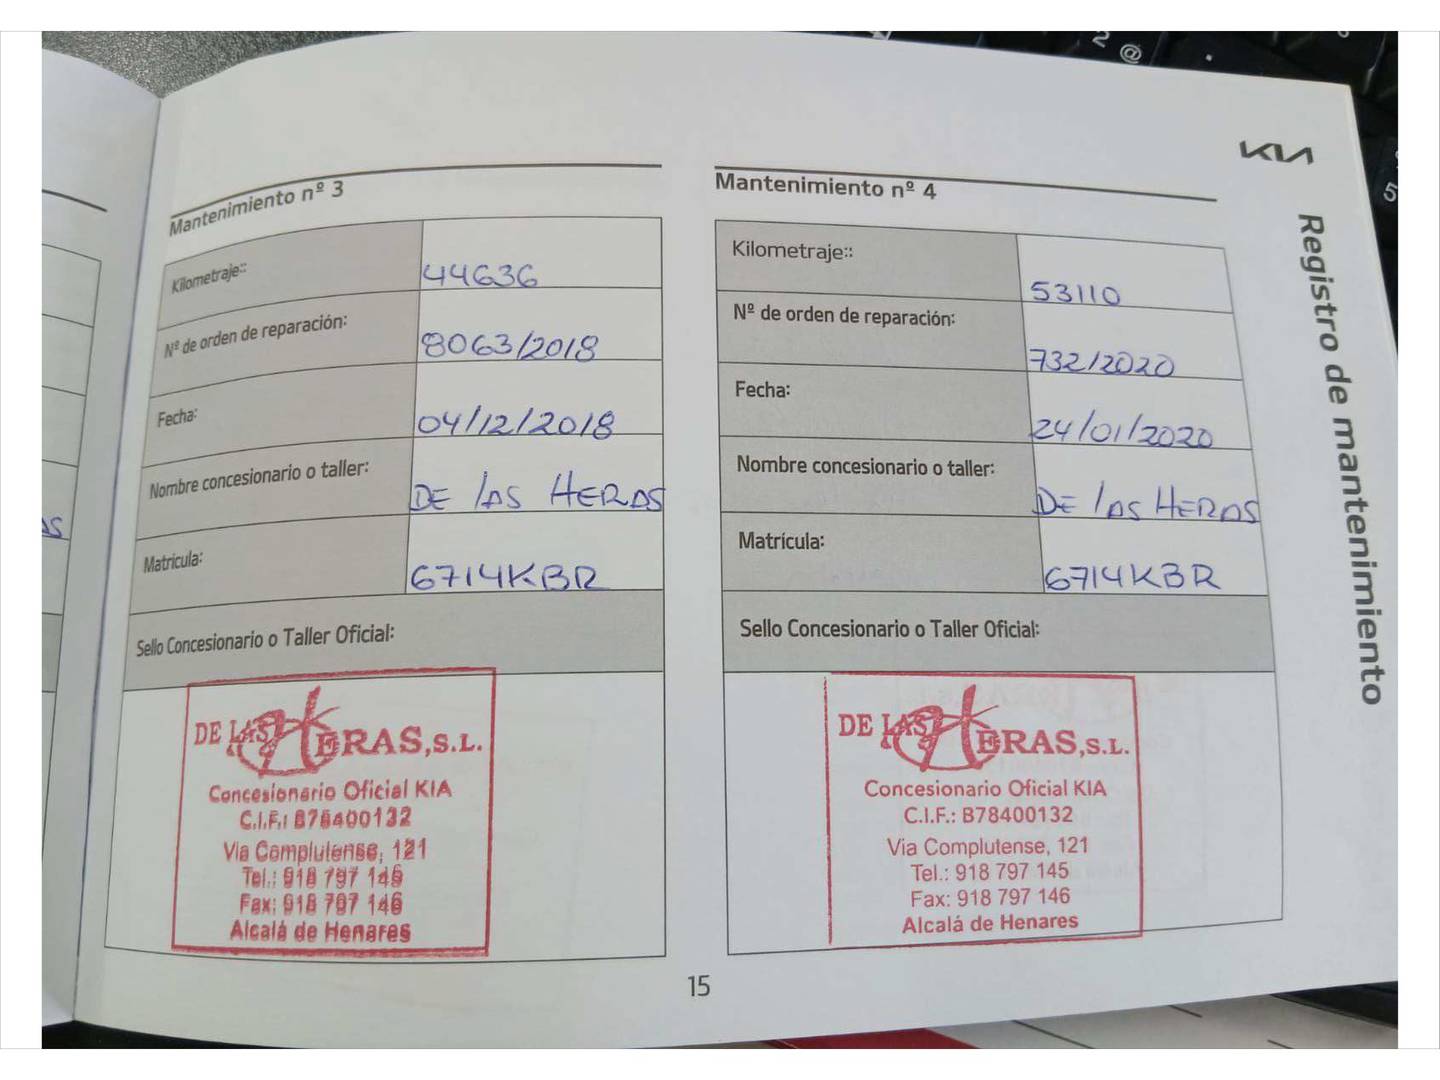 KIA
Registro de mantenimiento
Mantenimiento nº 3
Kilometraje:: 44636
Nº de orden de reparación: 8063/2018
Fecha: 04/12/2018
Nombre concesionario o taller: DE lAS HERAS
Matrícula: 6714KBR
Sello Concesionario o Taller Oficial:
DE LAS HERAS, S.L.
Concesionario Oficial KIA
C.I.F.: B78400132
Via Complutense, 121
Tel.: 918 797 145
Fax: 918 797 146
Alcalá de Henares
Mantenimiento nº 4
Kilometraje:: 53110
Nº de orden de reparación: 732/2020
Fecha: 24/01/2020
Nombre concesionario o taller: DE lAS HERAS
Matrícula: 6714KBR
Sello Concesionario o Taller Oficial:
DE LAS HERAS, S.L.
Concesionario Oficial KIA
C.I.F.: B78400132
Via Complutense, 121
Tel.: 918 797 145
Fax: 918 797 146
Alcalá de Henares
15
AS
2 @
5